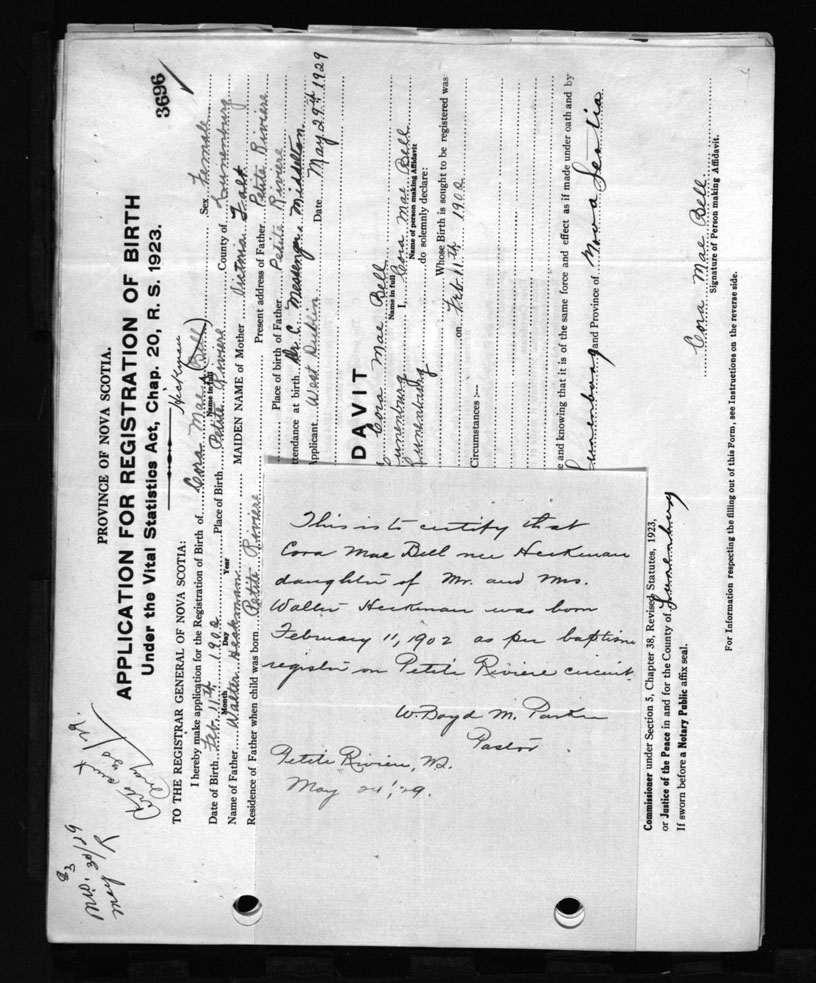 PROVINCE OF NOVA SCOTIA.
APPLICATION FOR REGISTRATION OF BIRTH
Under the Vital Statistics Act, Chap. 20, R. S. 1923.
3696
TO THE REGISTRAR GENERAL OF NOVA SCOTIA:
Heckman
I hereby make application for the Registration of Birth of Cora Mae (Bell) Sex Female
Name in full
Date of Birth Feb. 11th 1902 Place of Birth Petite Riviere County of Lunenburg
Month Day Year
Name of Father Walter Heckman MAIDEN NAME of Mother Victoria
Residence of Father when child was born Petite Riviere Present address of Father Petite Riviere
Place of birth of Father Petite Riviere
ttendance at birth Dr. C. Messenger, Middleton
pplicant West Dublin Date May 29th 1929
DAVIT
Cora Mae Bell
Name in full
Lunenburg I, Cora Mae Bell
Name of person making Affidavit
Lunenburg do solemnly declare:
Whose Birth is sought to be registered was
on Feb 11th 1902
Circumstances :—
e and knowing that it is of the same force and effect as if made under oath and by
Lunenburg and Province of Nova Scotia
Cora Mae Bell
Signature of Person making Affidavit.
Commissioner under Section 5, Chapter 38, Revised Statutes, 1923,
or Justice of the Peace in and for the County of Lunenburg
If sworn before a Notary Public affix seal.
For Information respecting the filling out of this Form, see Instructions on the reverse side.
This is to certify that
Cora Mae Bell nee Heckman
daughter of Mr. and Mrs.
Walter Heckman was born
February 11, 1902 as per baptism
register on Petite Riviere circuit
W. Boyd M. Parker
Pastor
Petite Riviere, N.S.
May 24, '29.